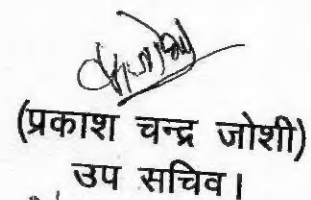 (प्रकाश चन्द्र जोशी)
उप सचिव।